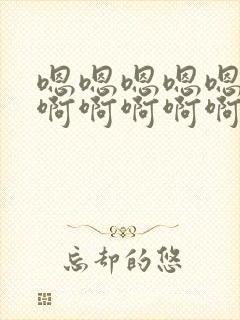 嗯嗯嗯嗯嗯
啊啊啊啊啊
忘却的悠